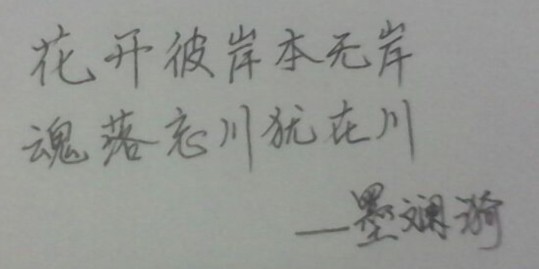 花开彼岸本无岸
魂落忘川犹在川
—墨斓漪